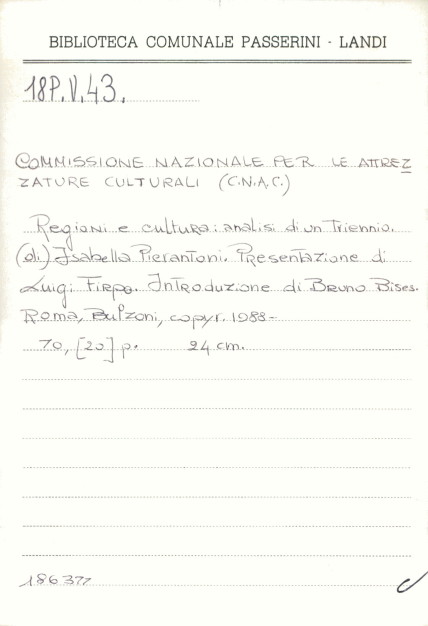 BIBLIOTECA COMUNALE PASSERINI - LANDI
18P.V.43.
COMMISSIONE NAZIONALE PER LE ATTREZ
ZATURE CULTURALI (C.N.A.C.)
Regioni e cultura: analisi di un Triennio.
(di) Isabella Pierantoni. Presentazione di
Luigi Firpo. Introduzione di Bruno Bises.
Roma, Bulzoni, copyr. 1988-
70, [20] p. 24 cm.
186377